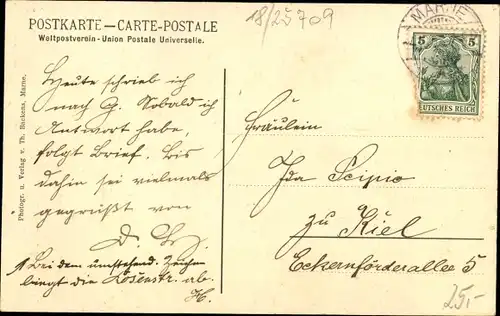 18/25709
POSTKARTE — CARTE-POSTALE
Weltpostverein - Union Postale Universelle.
MARNE
5 5
DEUTSCHES REICH
Photogr. u. Verlag v. Th. Backens, Marne.
Heute schrieb ich
nach G. Sobald ich
Antwort habe,
folgt Brief. Bis
dahin sei vielmals
gegrüßt von
D.
Bei dem umstehend. Zeichen
biegt die Losenstr. ab.
H.
Fräulein
Ida Scipio
zu Kiel
Eckernförderallee 5
25,-